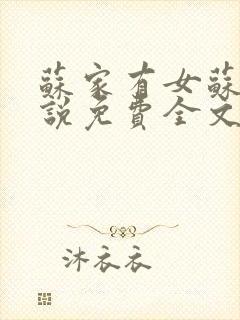 蘇家有女蘇
說免費全文
沐衣衣